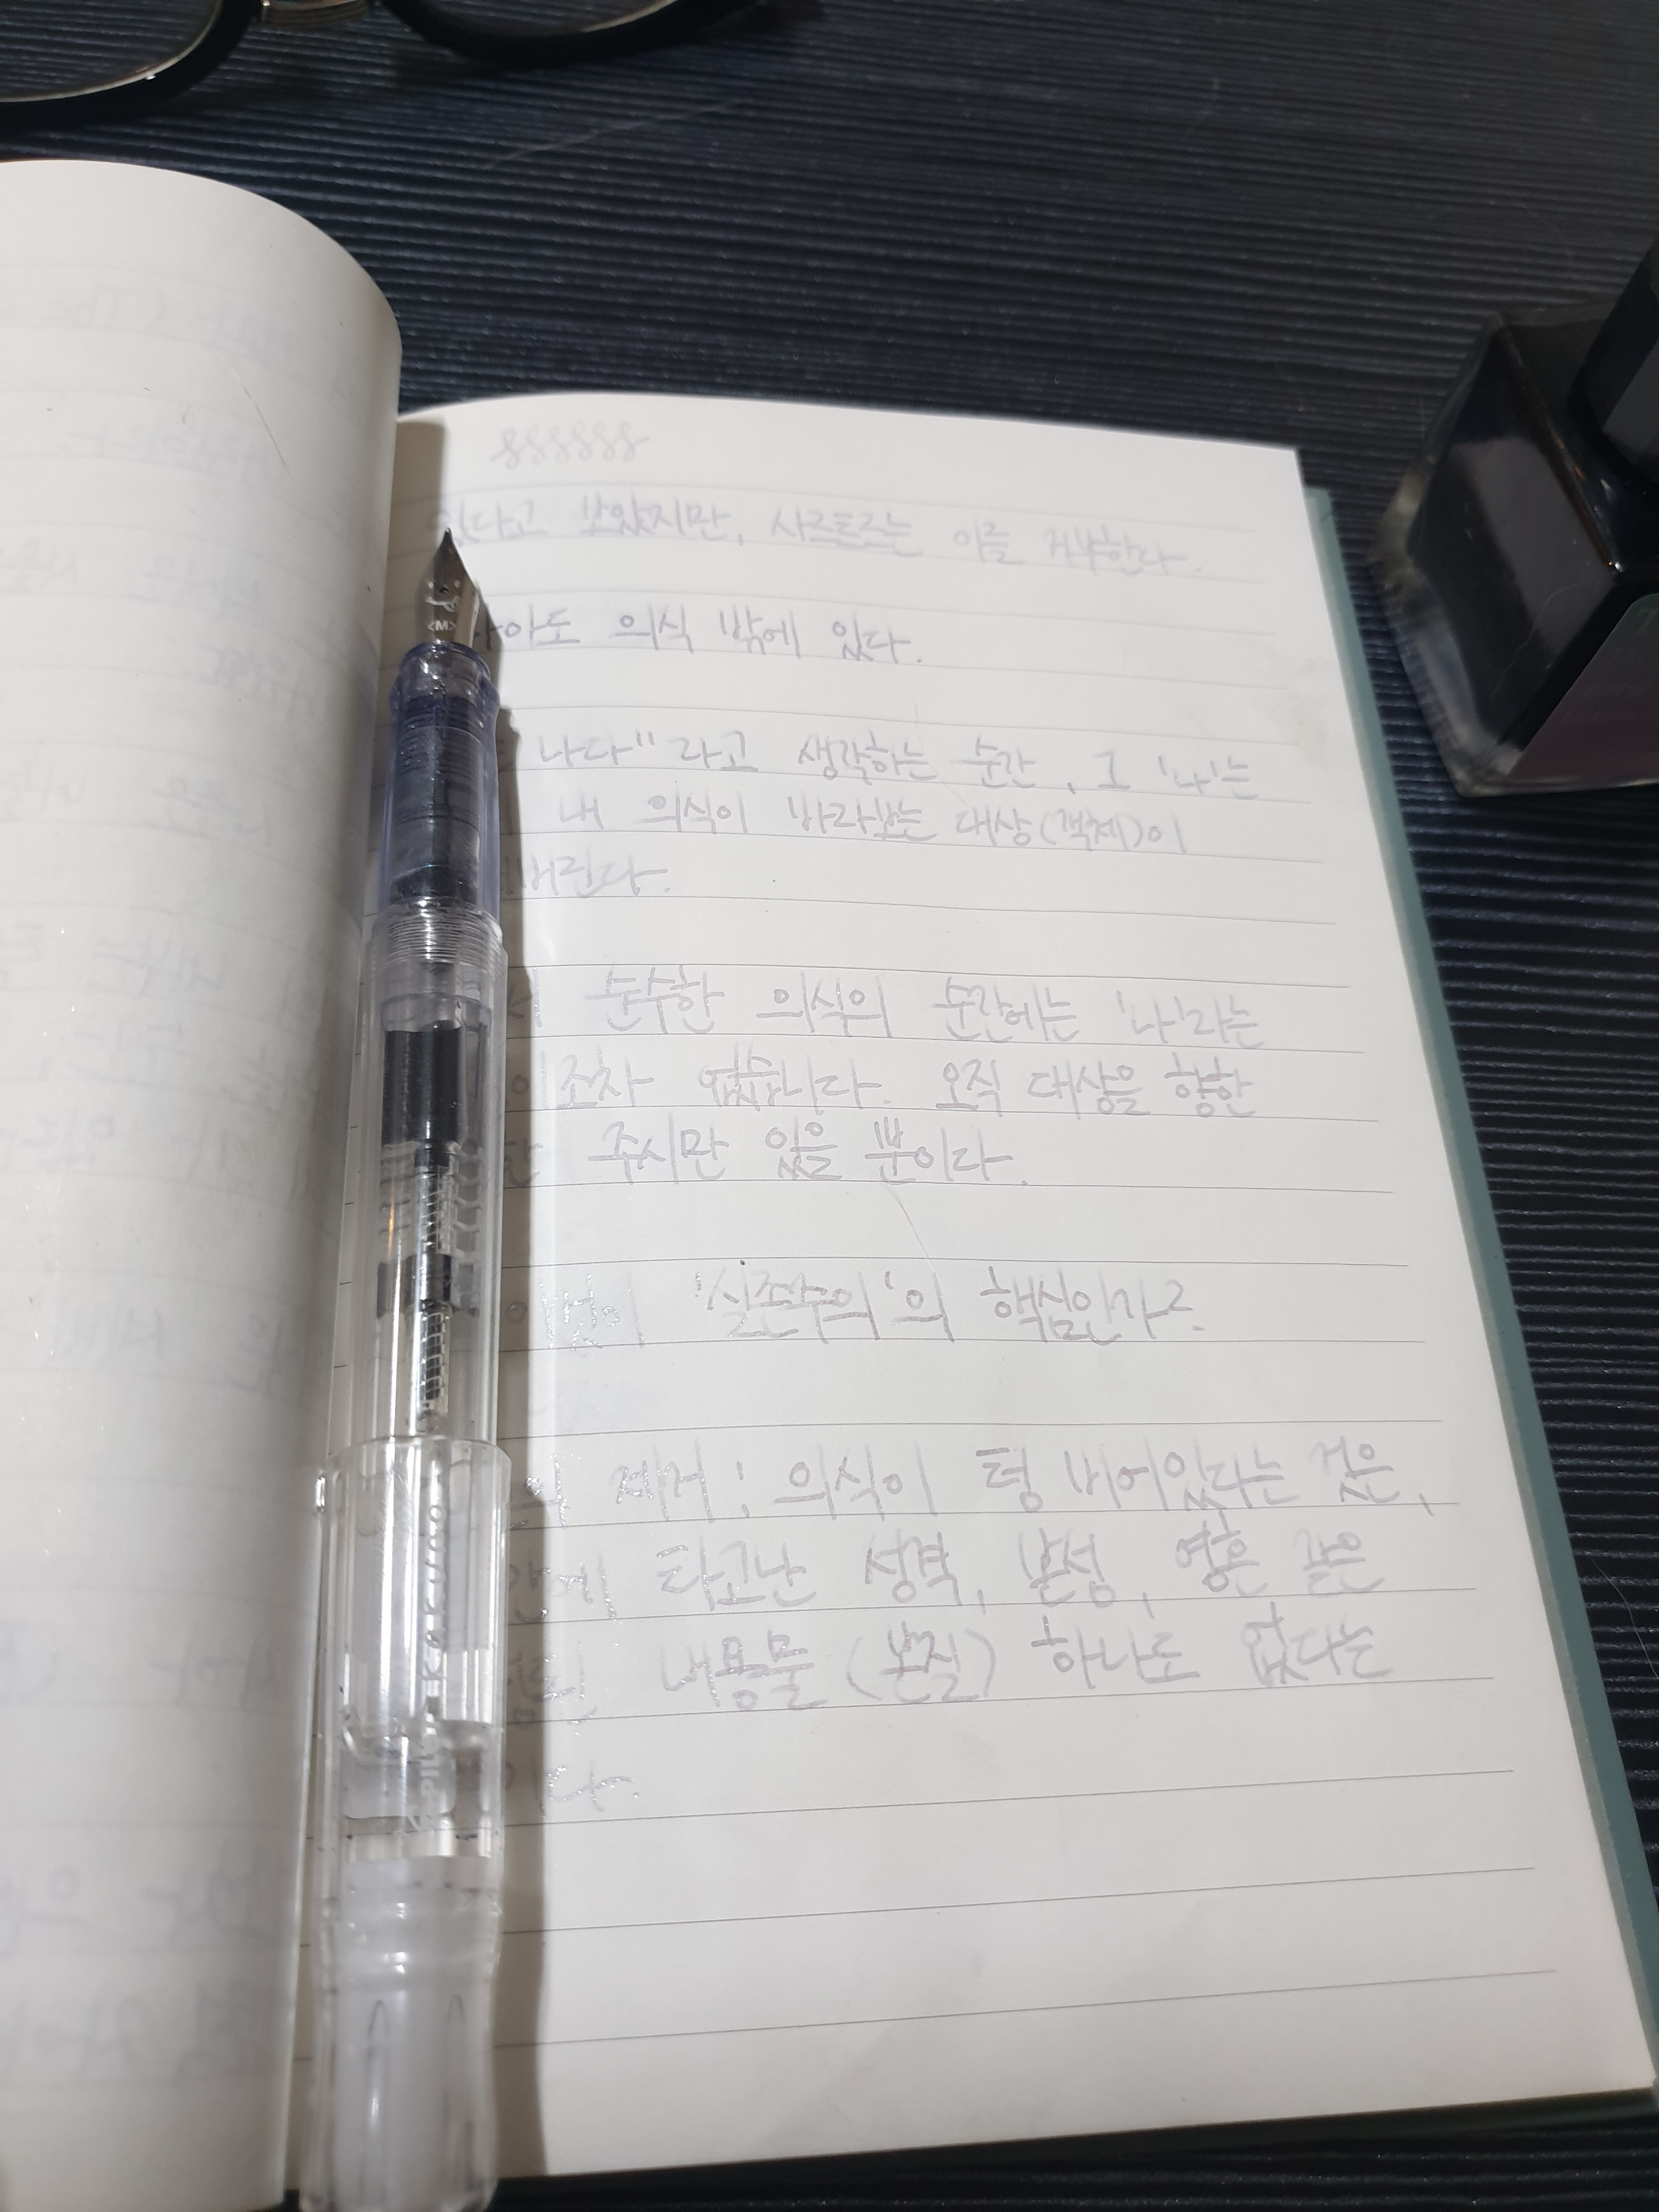 있다고 보았지만, 사르트르는 이를 거부한다.
자아도 의식 밖에 있다.
나다" 라고 생각하는 순간, 그 '나'는
내 의식이 바라보는 대상(객체)이
버린다.
순수한 의식의 순간에는 '나'라는
조차 없습니다. 오직 대상을 향한
주시만 있을 뿐이다.
이것이 '실존주의'의 핵심인가?
제거 : 의식이 텅 비어있다는 것은,
안에 타고난 성격, 본성, 영혼 같은
내용물 (본질) 하나도 없다는
이다.
<M>
PILOT KAKUNO